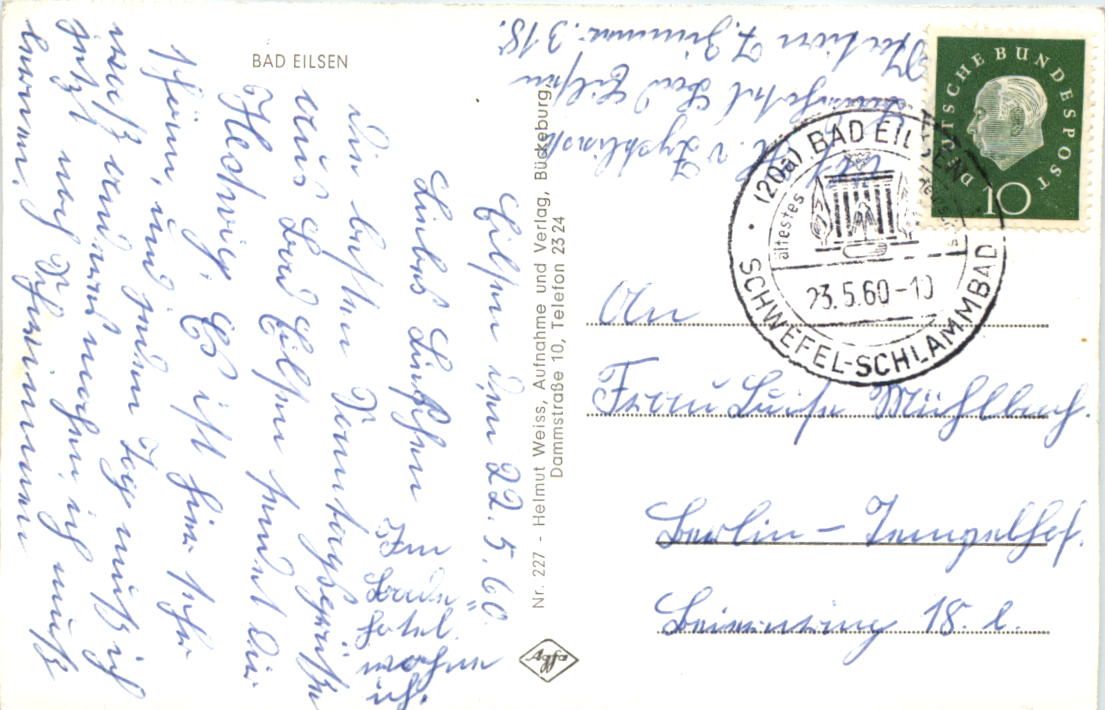 BAD EILSEN
Eilsen den 22.5.60.
Liebes Luischen
Die besten Sonntagsgrüße
aus Bad Eilsen sendet Dir
Hedwig. Es ist hier sehr
schön, und jeden Tag muß ich
was anderes machen, ich muß
jetzt noch Schwimmen
lernen.
Im
Bade"
hotel.
wohne
ich.
Nr. 227 - Helmut Weiss, Aufnahme und Verlag, Bückeburg,
Dammstraße 10, Telefon 23 24
Agfa
Bad Eilsen
Station 7. Zimmer 318.
DEUTSCHE BUNDESPOST
10
(20a) BAD EILSEN
ältestes
23.5.60-10
SCHWEFEL-SCHLAMMBAD
An
Frau Luise Mühlbach.
Berlin – Tempelhof.
18. l.